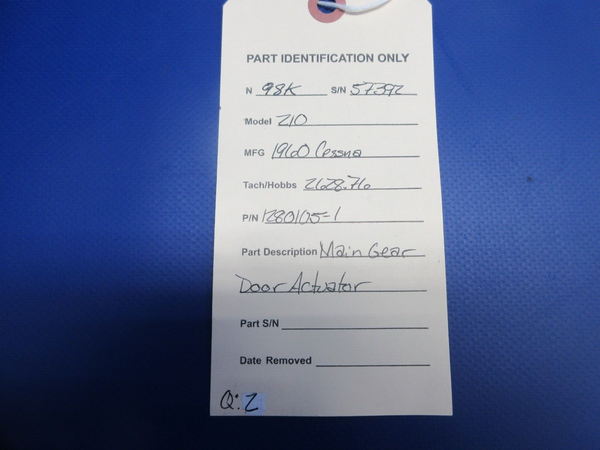 PART IDENTIFICATION ONLY
N 98K S/N 57392
Model 210
MFG 1960 Cessna
Tach/Hobbs 2628.76
P/N 1280105-1
Part Description Main Gear
Door Actuator
Part S/N
Date Removed
Q: 2